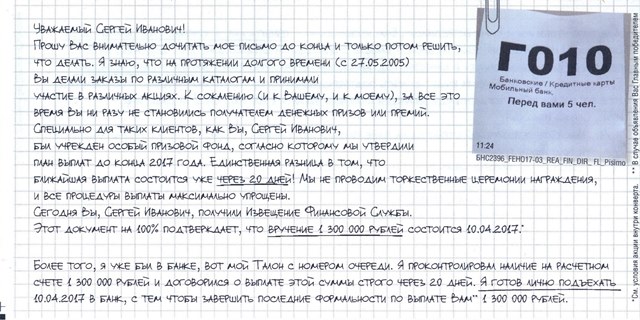 Уважаемый Сергей Иванович!
Прошу Вас внимательно дочитать мое письмо до конца и только потом решить,
что делать. Я знаю, что на протяжении долгого времени (с 27.05.2005)
Вы делали заказы по различным каталогам и принимали
участие в различных акциях. К сожалению (и к Вашему, и к моему), за все это
время Вы ни разу не становились получателем денежных призов или премий.
Специально для таких клиентов, как Вы, Сергей Иванович,
был учрежден особый призовой фонд, согласно которому мы утвердили
план выплат до конца 2017 года. Единственная разница в том, что
ближайшая выплата состоится уже через 20 дней! Мы не проводим торжественные церемонии награждения,
и все процедуры выплаты максимально упрощены.
Сегодня Вы, Сергей Иванович, получили Извещение Финансовой Службы.
Этот документ на 100% подтверждает, что вручение 1 300 000 рублей состоится 10.04.2017.*
Более того, я уже был в банке, вот мой талон с номером очереди. Я проконтролировал наличие на расчетном
счете 1 300 000 рублей и договорился о выплате этой суммы строго через 20 дней. Я готов лично подъехать
10.04.2017 в банк, с тем чтобы завершить последние формальности по выплате Вам** 1 300 000 рублей.
Г010
Банковские / Кредитные карты
Мобильный банк,
Перед вами 5 чел.
11:24
БНС2396_FEHO17-03_REA_FIN_DIR_FL_Pismo
*См. условия акции внутри конверта. ** В случае объявления Вас Главным победителем